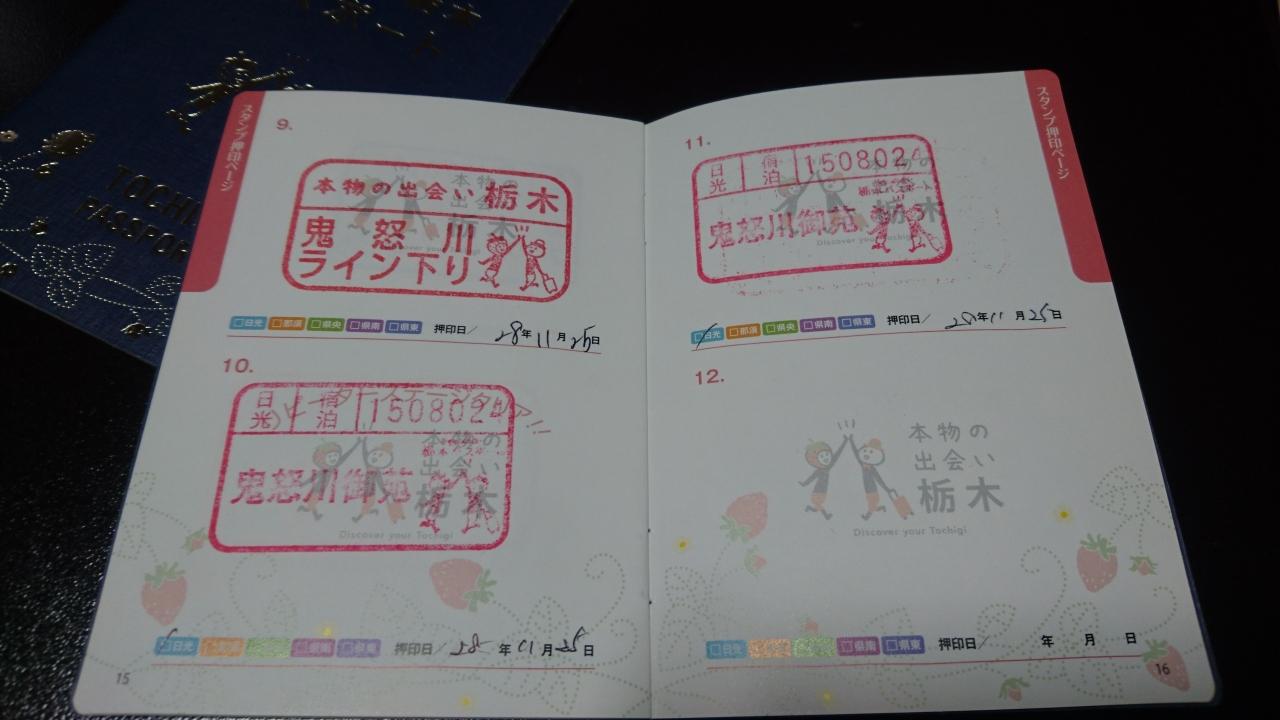 TOCHI
PASSPOR
スタンプ押印ページ
9.
本物の出会い 栃木
鬼怒川
ライン下り
□日光 □那須 □県央 □県南 □県東 押印日/ 28年11月25日
10.
日光 宿泊 1508024
鬼怒川御苑
本物の
出会い
栃木
Discover your Tochigi
□日光 □那須 □県央 □県南 □県東 押印日/ 28年11月25日
15
スタンプ押印ページ
11.
日光 宿泊 1508024
栃木パスポート
鬼怒川御苑
□日光 □那須 □県央 □県南 □県東 押印日/ 28年11月25日
12.
本物の
出会い
栃木
Discover your Tochigi
□日光 □那須 □県央 □県南 □県東 押印日/ 年 月 日
16